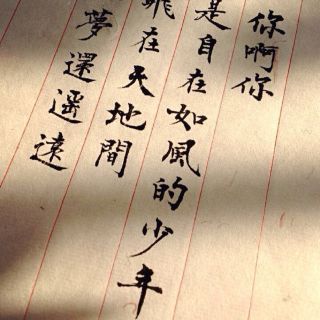 你啊你
是自在如風的少年
飛在天地間
夢還遥遠